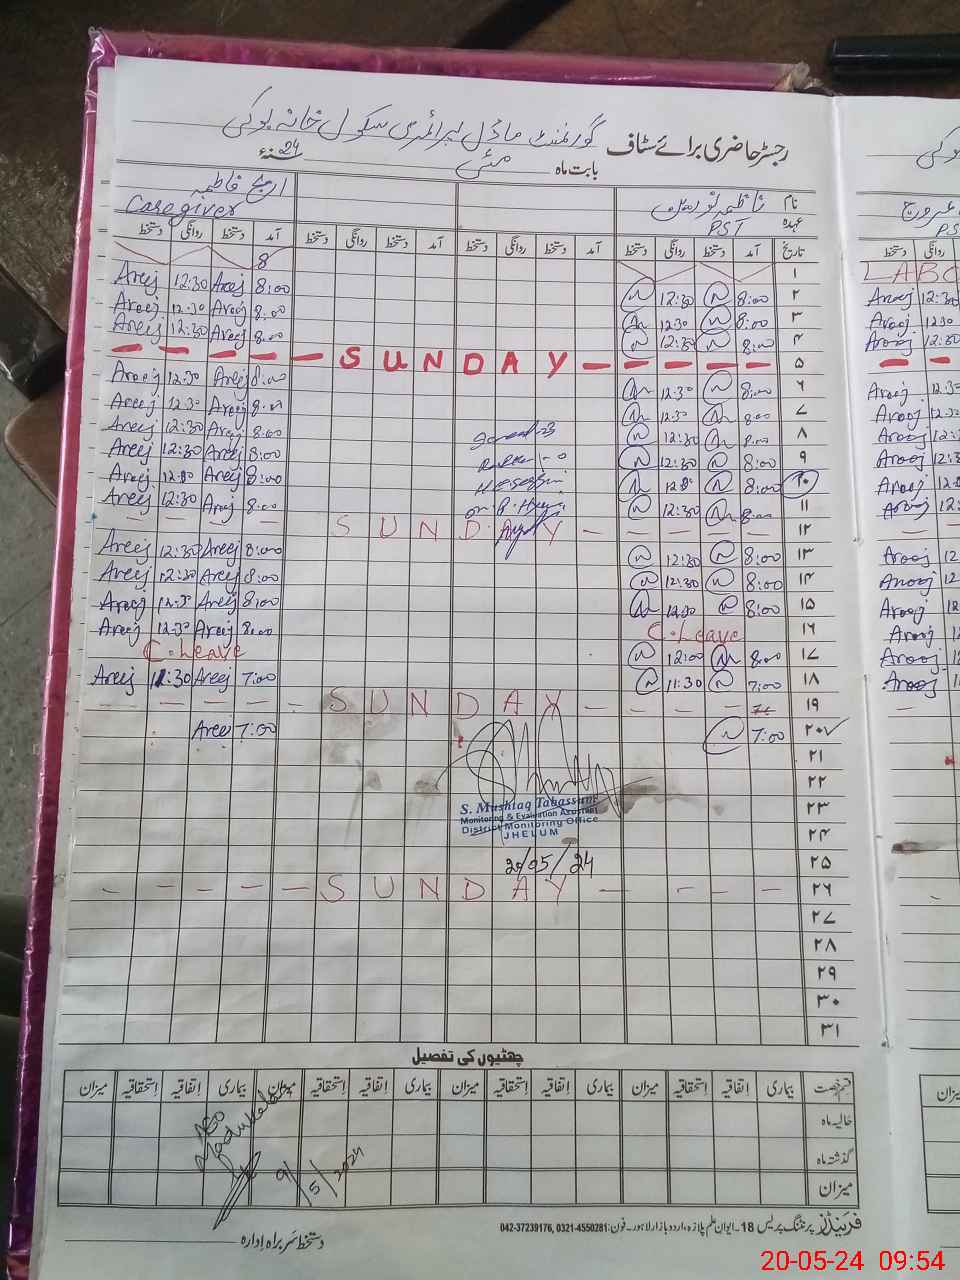 گورنمنٹ ماڈل پرائمری سکول خانہ بوکی
رجسٹر حاضری برائے سٹاف
بابت ماہ مئی سنہء 24
نام ناظمہ نورین اریج فاطمہ
عہدہ PST Caregiver
تاریخ آمد دستخط روانگی دستخط آمد دستخط روانگی دستخط آمد دستخط روانگی دستخط آمد دستخط روانگی دستخط
۱ 8
Areej 12:30 Areej 8:00 12:30 8:00 ۲
Areej 12:30 Areej 8:00 12:30 8:00 ۳
Areej 12:30 Areej 8:00 12:30 8:00 ۴
— — — — — S U N D A Y — — — — — ۵
Areej 12:30 Areej 8:00 12:30 8:00 ۶
Areej 12:30 Areej 8:00 12:30 8:00 ۷
Areej 12:30 Areej 8:00 12:30 8:00 ۸
Areej 12:30 Areej 8:00 12:30 8:00 ۹
Areej 12:30 Areej 8:00 12:30 8:00 ۱۰
Areej 12:30 Areej 8:00 12:30 8:00 ۱۱
— — — — S U N D A Y — — — — — ۱۲
Areej 12:30 Areej 8:00 12:30 8:00 ۱۳
Areej 12:30 Areej 8:00 12:30 8:00 ۱۴
Areej 12:30 Areej 8:00 12:30 8:00 ۱۵
Areej 12:30 Areej 8:00 C. Leave ۱۶
C. Leave 12:00 8:00 ۱۷
Areej 11:30 Areej 7:00 11:30 7:00 ۱۸
— — — — — S U N D A Y — — — — ۱۹
Areej 7:00 7:00 ۲۰
۲۱
۲۲
S. Mushtaq Tabassum ۲۳
Monitoring & Evaluation Assistant
District Monitoring Office
JHELUM ۲۴
20/05/24 ۲۵
— — — — — S U N D A Y — — — — ۲۶
۲۷
۲۸
۲۹
۳۰
۳۱
چھٹیوں کی تفصیل
قسم رخصت بیماری اتفاقیہ استحقاقیہ میزان بیماری اتفاقیہ استحقاقیہ میزان بیماری اتفاقیہ استحقاقیہ میزان بیماری اتفاقیہ استحقاقیہ میزان
حالیہ ماہ
گذشتہ ماہ
میزان
AEO
9/5/2024
فرینڈز پرنٹنگ پریس 18۔ایوان علم پلازہ، اردو بازار لاہور۔فون: 042-37239176, 0321-4550281
دستخط سربراہ ادارہ
20-05-24 09:54